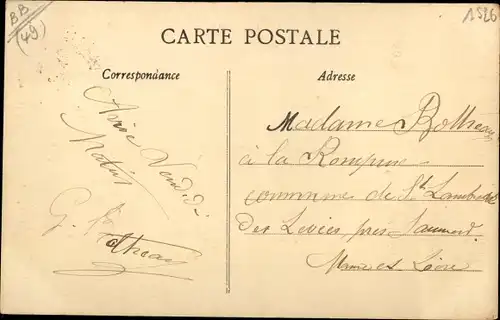 BB
(49)
1526
CARTE POSTALE
Correspondance
Adresse
Arive Vendredi
Matin
G. Bottreau
Madame Bottreau
à la
commune de St Lambert
des Levées près Saumur
Maine et Loire